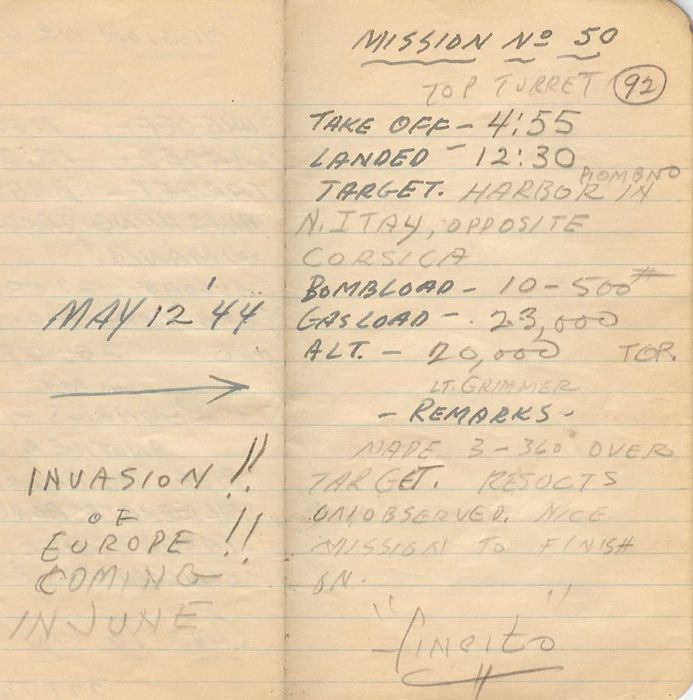 MAY 12 '44
INVASION !!
OF
EUROPE !!
COMING
IN JUNE
MISSION No 50
TOP TURRET 92
TAKE OFF - 4:55
LANDED - 12:30
PIOMBNO
TARGET. HARBOR IN
N. ITAY, OPPOSITE
CORSICA
BOMBLOAD - 10-500#
GASLOAD - 23,000
ALT. - 20,000 TOP.
LT. GRIMMER
- REMARKS -
MADE 3-360° OVER
TARGET. RESOCTS
UNOBSERVED. NICE
MISSION TO FINISH
ON.